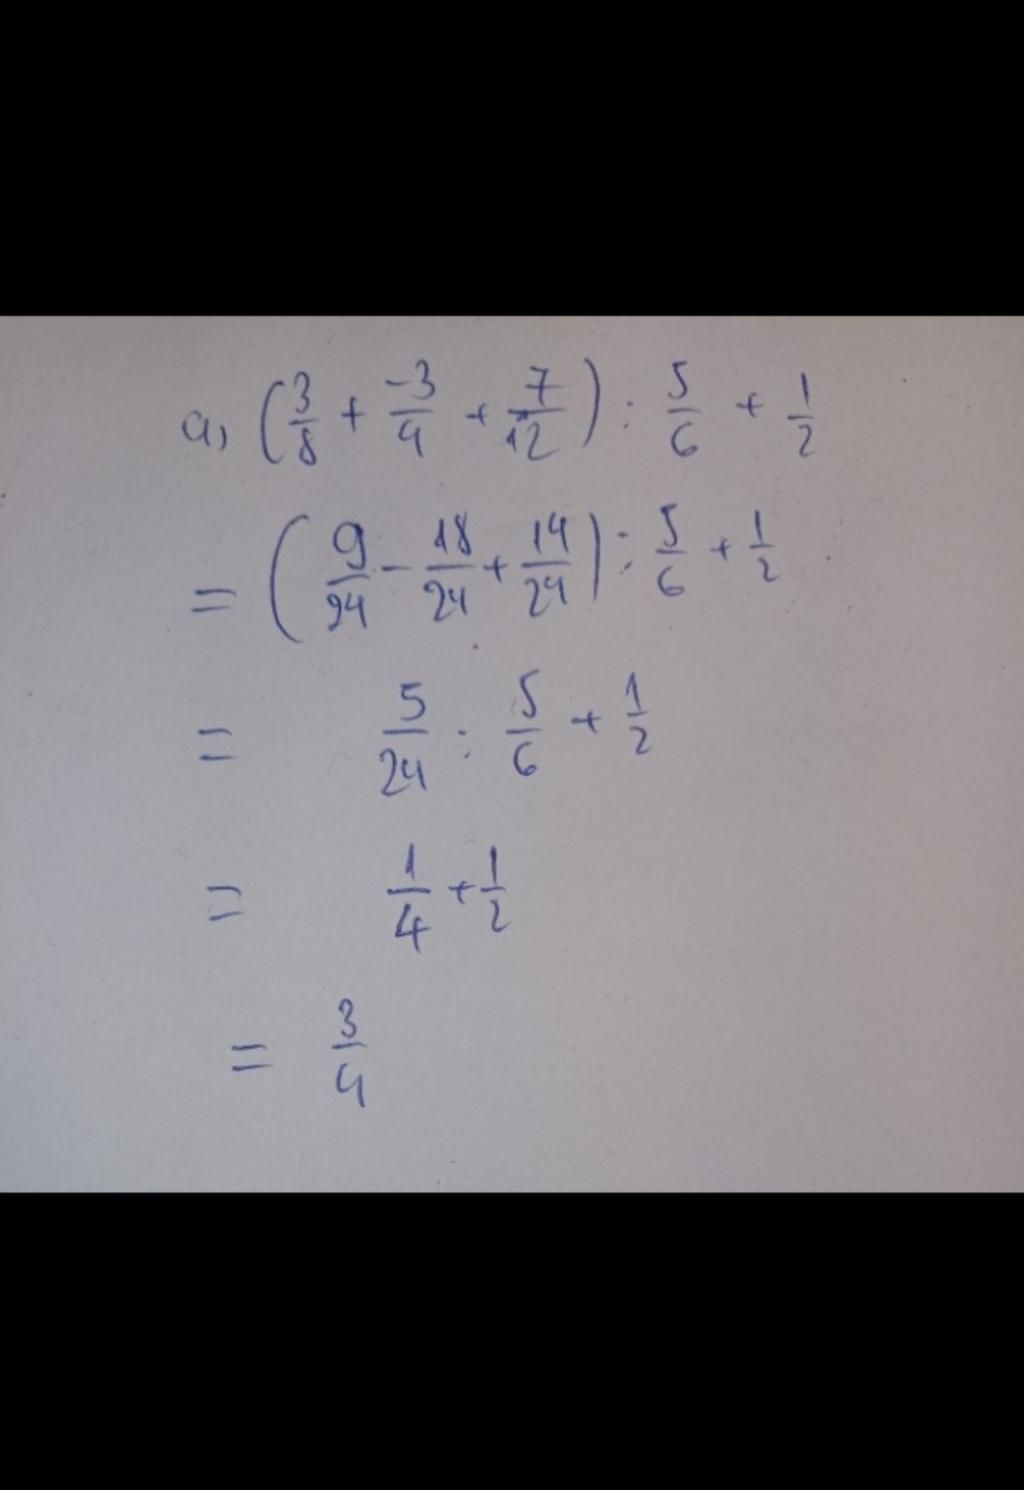 a, (3/8 + -3/4 + 7/12) : 5/6 + 1/2
= (9/24 - 18/24 + 14/24) : 5/6 + 1/2
= 5/24 : 5/6 + 1/2
= 1/4 + 1/2
= 3/4